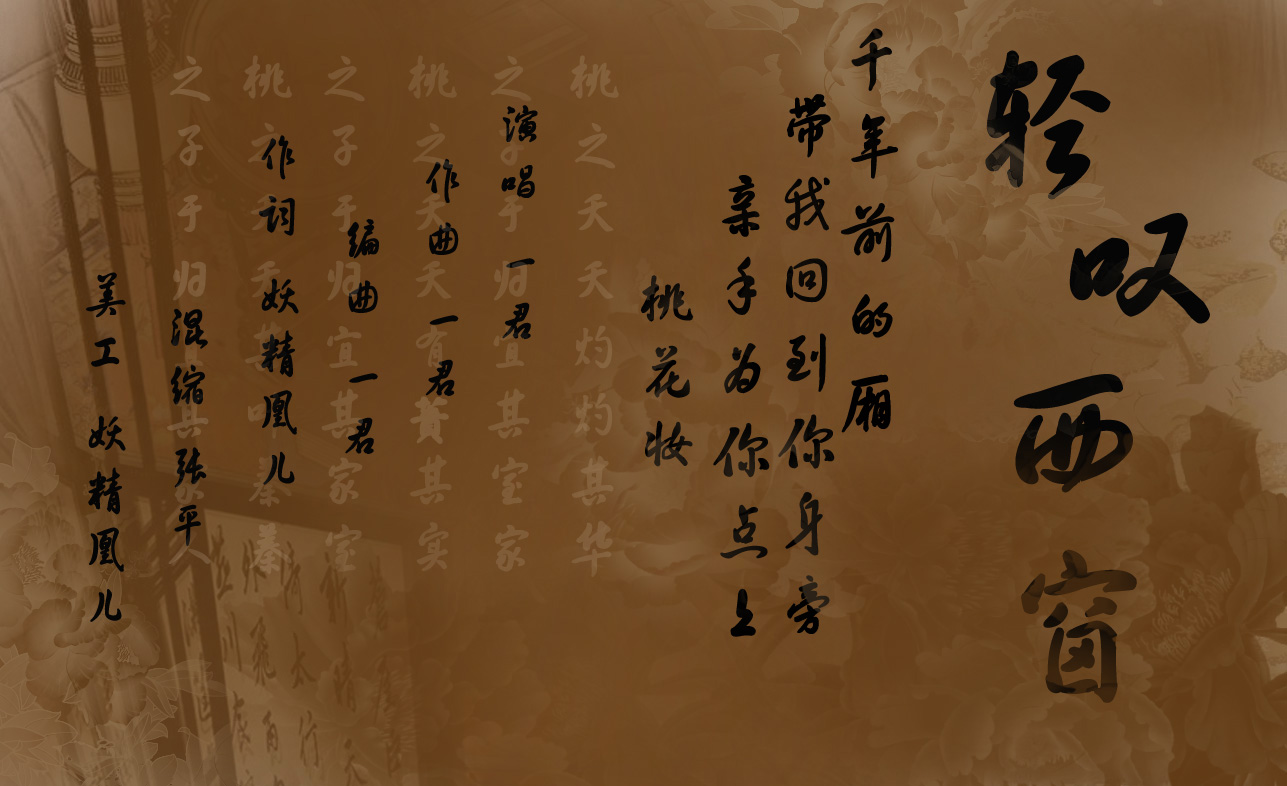 轻叹西窗
千年前的厢
带我回到你身旁
亲手为你点上
桃花妆
桃之天天灼灼其华
之子于归宜其室家
演唱 一君
桃之天天有蕡其实
作曲 一君
之子于归宜其家室
编曲 一君
桃之天天其叶蓁蓁
作词 妖精凰儿
之子于归宜其家人
混缩 张平
美工 妖精凰儿